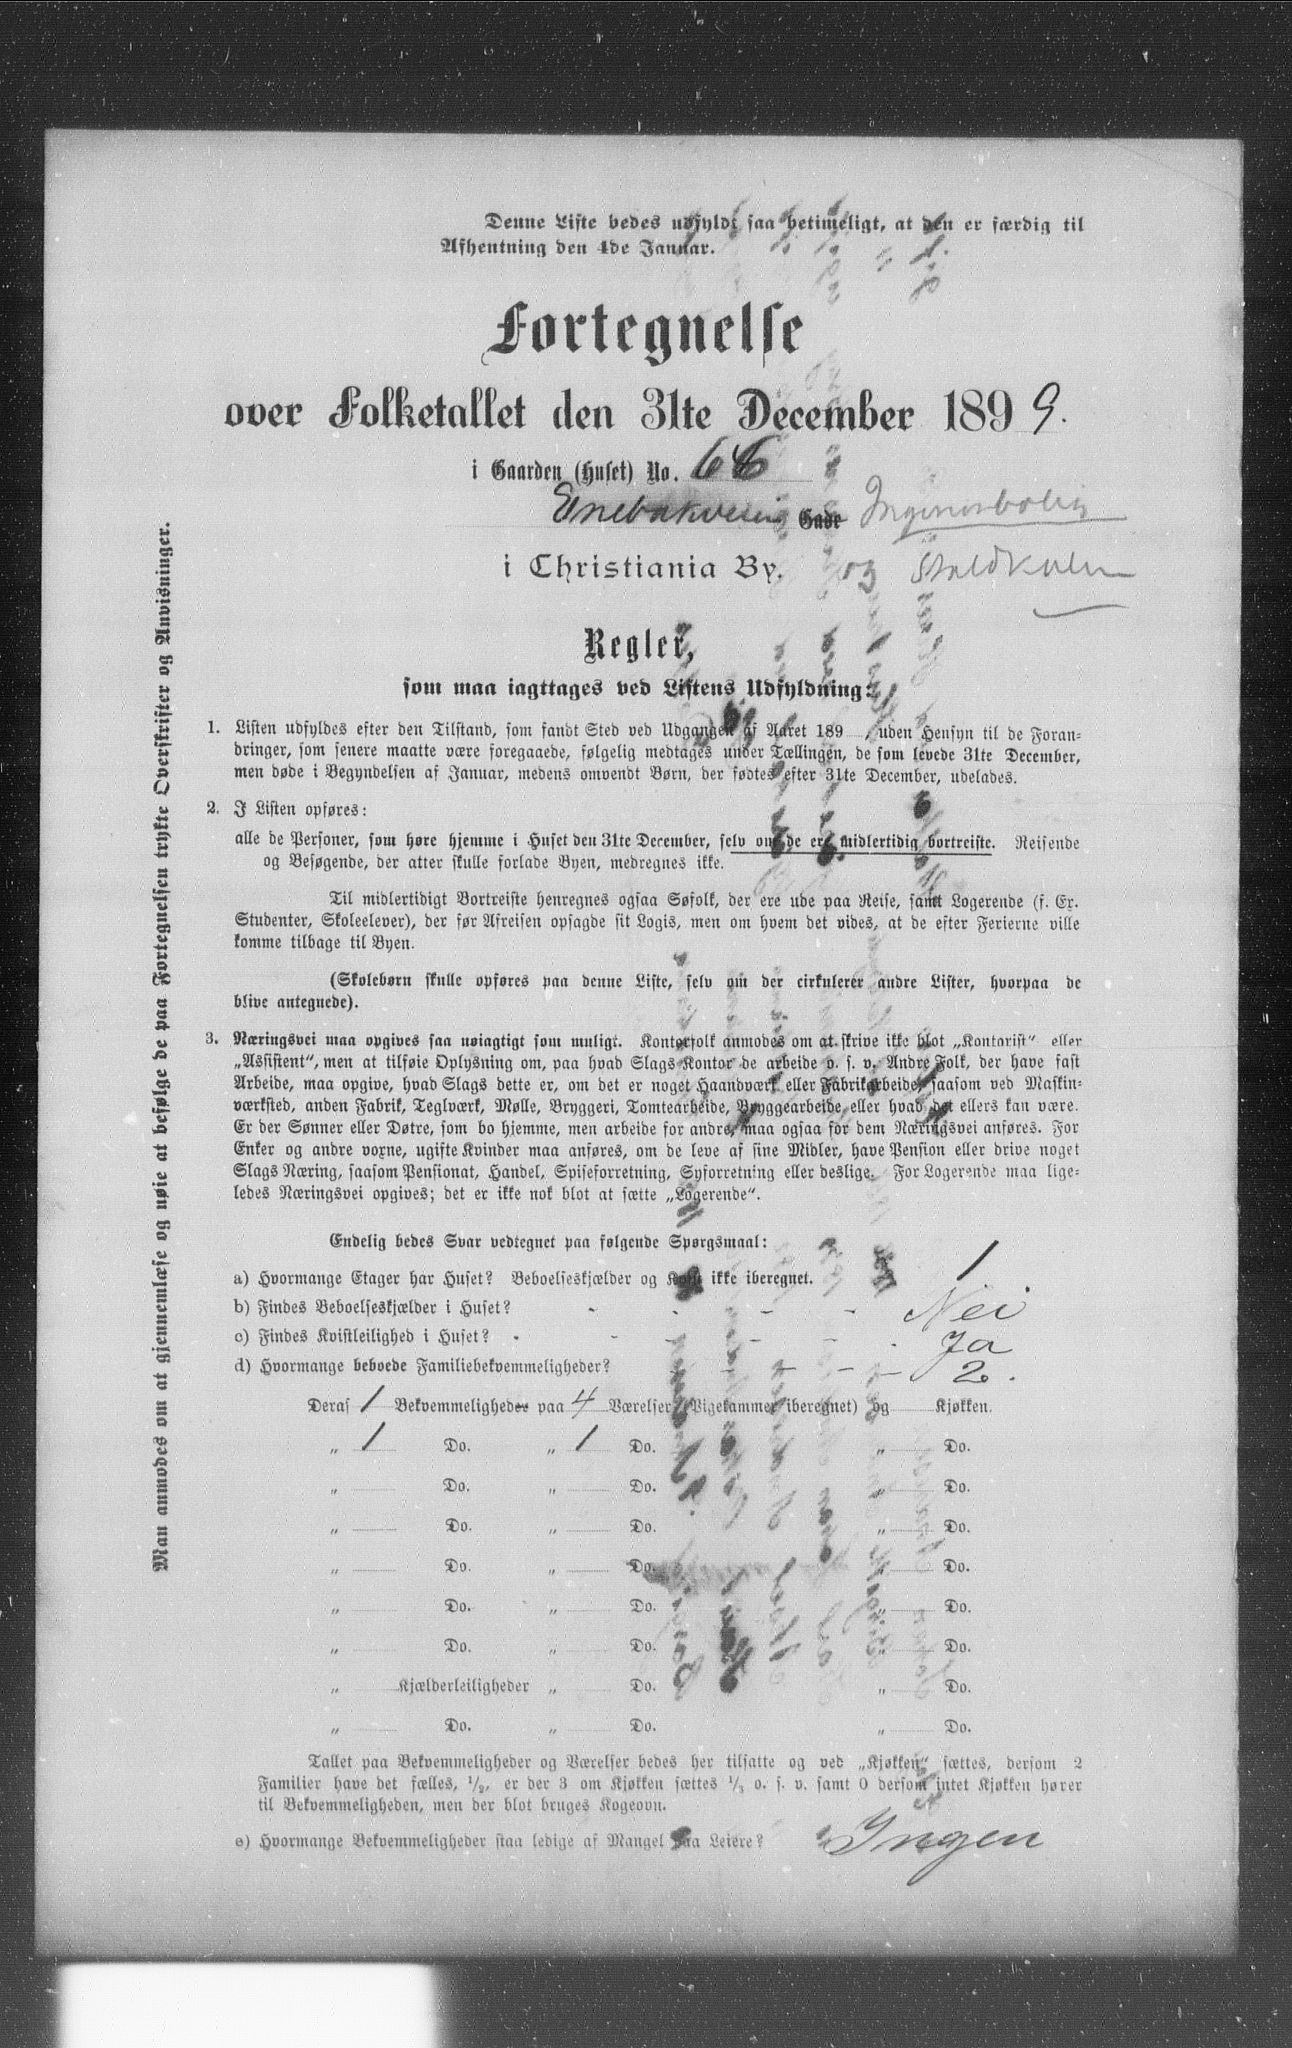 Denne Liste bedes udfyldt saa betimeligt, at den er færdig til
Afhentning den 4de Januar.
Fortegnelse
over Folketallet den 31te December 1899.
i Gaarden (Huset) No. 66
Enebakveien Gade Ingeniørbolig
i Christiania By. og
Regler,
som maa iagttages ved Listens Udfyldning:
1. Listen udfyldes efter den Tilstand, som fandt Sted ved Udgangen af Aaret 189 , uden Hensyn til de Foran-
dringer, som senere maatte være foregaaede, følgelig medtages under Tællingen, de som levede 31te December,
men døde i Begyndelsen af Januar, medens omvendt Børn, der fødtes efter 31te December, udelades.
2. I Listen opføres:
alle de Personer, som høre hjemme i Huset den 31te December, selv om de er midlertidig bortreiste. Reisende
og Besøgende, der atter skulle forlade Byen, medregnes ikke.
Til midlertidigt Bortreiste henregnes ogsaa Søfolk, der ere ude paa Reise, samt Logerende (f. Ex.
Studenter, Skoleelever), der før Afreisen opsagde sit Logis, men om hvem det vides, at de efter Ferierne ville
komme tilbage til Byen.
(Skolebørn skulle opføres paa denne Liste, selv om der cirkulerer andre Lister, hvorpaa de
blive antegnede).
3. Næringsvei maa opgives saa nøiagtigt som muligt. Kontorfolk anmodes om at skrive ikke blot „Kontorist" eller
„Assistent", men at tilføie Oplysning om, paa hvad Slags Kontor de arbeide o. s. v. Andre Folk, der have fast
Arbeide, maa opgive, hvad Slags dette er, om det er noget Haandværk eller Fabrikarbeide, saasom ved Maskin-
værksted, anden Fabrik, Teglværk, Mølle, Bryggeri, Tomtearbeide, Bryggearbeide eller hvad det ellers kan være.
Er der Sønner eller Døtre, som bo hjemme, men arbeide for andre, maa ogsaa for dem Næringsvei anføres. For
Enker og andre voxne, ugifte Kvinder maa anføres, om de leve af sine Midler, have Pension eller drive noget
Slags Næring, saasom Pensionat, Handel, Spiseforretning, Syforretning eller deslige. For Logerende maa lige-
ledes Næringsvei opgives; det er ikke nok blot at sætte „Logerende".
Endelig bedes Svar vedtegnet paa følgende Spørgsmaal:
a) Hvormange Etager har Huset? Beboelseskjælder og Kvist ikke iberegnet. 1
b) Findes Beboelseskjælder i Huset? - - - - Nei
c) Findes Kvistleilighed i Huset? - - - - Ja
d) Hvormange beboede Familiebekvemmeligheder? - - - 2.
Deraf 1 Bekvemmeligheder paa 4 Værelser (Pigekammer iberegnet) og Kjøkken.
„ 1 Do. „ 1 Do. „ Do.
„ Do. „ Do. „ Do.
„ Do. „ Do. „ Do.
„ Do. „ Do. „ Do.
„ Do. „ Do. „ Do.
„ Do. „ Do. „ Do.
„ Kjælderleiligheder „ Do. „ Do.
„ Do. „ Do. „ Do.
Tallet paa Bekvemmeligheder og Værelser bedes her tilsatte og ved „Kjøkken" sættes, dersom 2
Familier have det fælles, 1/2, er der 3 om Kjøkken sættes 1/3 o. s. v. samt 0 dersom intet Kjøkken hører
til Bekvemmeligheden, men der blot bruges Kogeovn.
e) Hvormange Bekvemmeligheder staa ledige af Mangel paa Leiere? Ingen
Man anmodes om at gjennemlæse og nøie at befølge de paa Fortegnelsen trykte Overskrifter og Anvisninger.